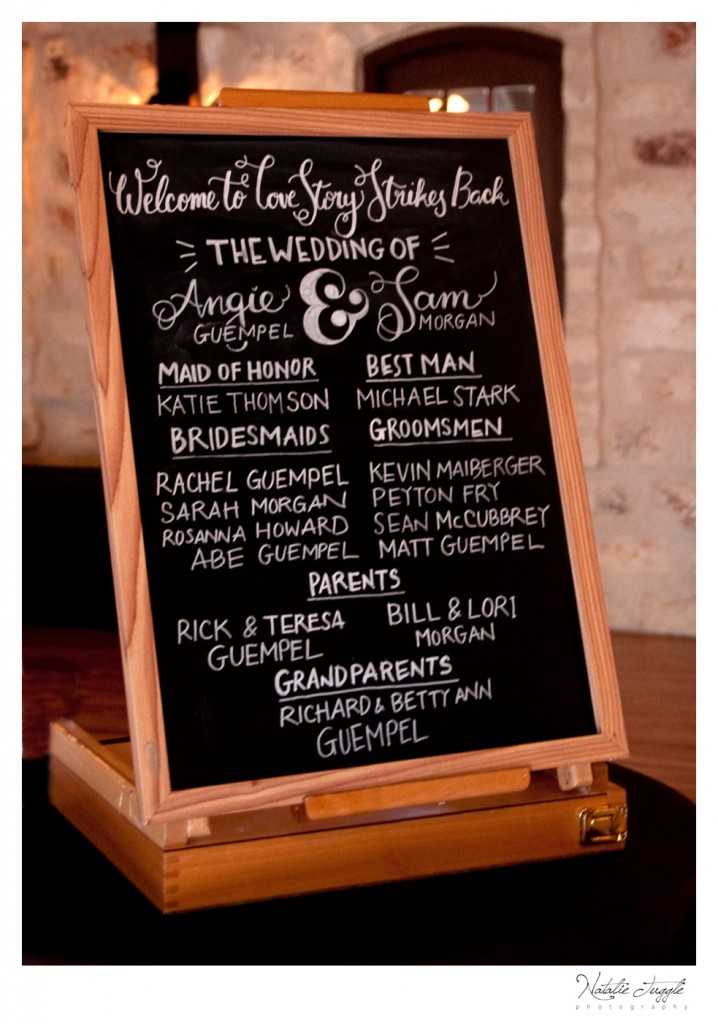 Welcome to Love Story Strikes Back
THE WEDDING OF
Angie & Sam
GUEMPEL MORGAN
MAID OF HONOR BEST MAN
KATIE THOMSON MICHAEL STARK
BRIDESMAIDS GROOMSMEN
RACHEL GUEMPEL KEVIN MAIBERGER
SARAH MORGAN PEYTON FRY
ROSANNA HOWARD SEAN McCUBBREY
ABE GUEMPEL MATT GUEMPEL
PARENTS
RICK & TERESA BILL & LORI
GUEMPEL MORGAN
GRANDPARENTS
RICHARD & BETTY ANN
GUEMPEL
Natalie Juggle
photography